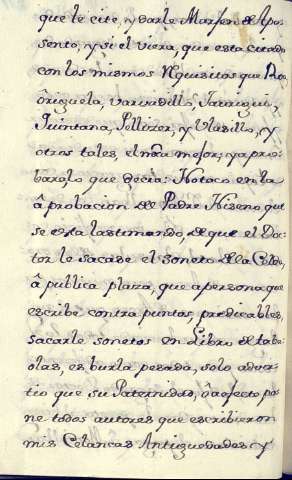 que le cite, y darle Marjen de Apo-
sento, y si el viera, que esta citado
con los mismos Requisitos que Ro-
origuela, varvadillo, Jaurigui,
Quintana, Pellizer, y Vlasillo, y
otros tales, el mejor; ya pro-
baralo que decia: Notaco en la
âprobacion de Padre Niseno que
se esta lastimando, de que el Doc-
tor le sacase el soneto de la
â publica plaza, que a persona que
escribe contra puntas, predicables,
sacarle sonetos en Libro de
olas, es burla pesada, solo adver-
tio que su Paternidad, o afecto po-
ne todos autores que escribieron
mis Antiguedades y